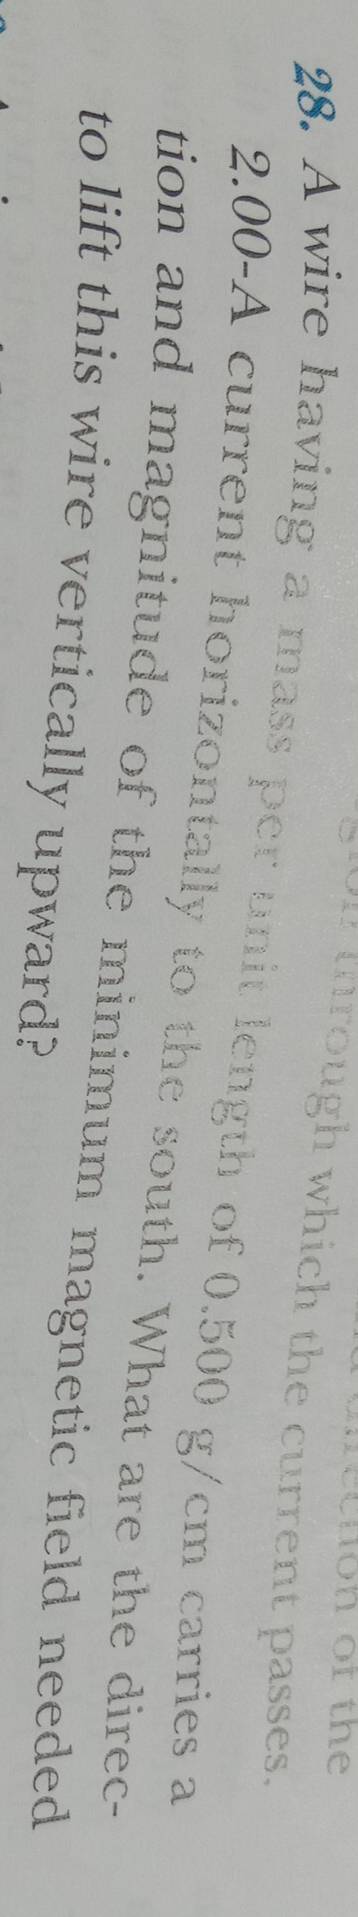 through which the current passes.
28. A wire having a mass per unit length of 0.500 g/cm carries a
2.00-A current horizontally to the south. What are the direc-
tion and magnitude of the minimum magnetic field needed
to lift this wire vertically upward?